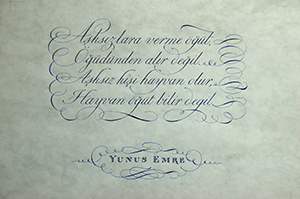 Aşksızlara verme öğüt,
Öğüdünden alır değil.
Aşksız kişi hayvan olur,
Hayvan öğüt bilir değil.
YUNUS EMRE